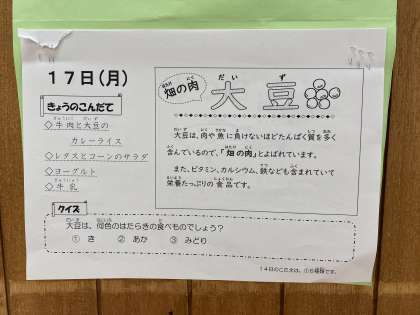 17日(月)
きょうのこんだて
◇牛肉と大豆の
カレーライス
◇レタスとコーンのサラダ
◇ヨーグルト
◇牛乳
畑の肉
大豆
大豆は、肉や魚に負けないほどたんぱく質を多く
含んでいるので、「畑の肉」とよばれています。
また、ビタミン、カルシウム、鉄なども含まれていて
栄養たっぷりの食品です。
クイズ
大豆は、何色のはたらきの食べものでしょう?
① き ② あか ③ みどり